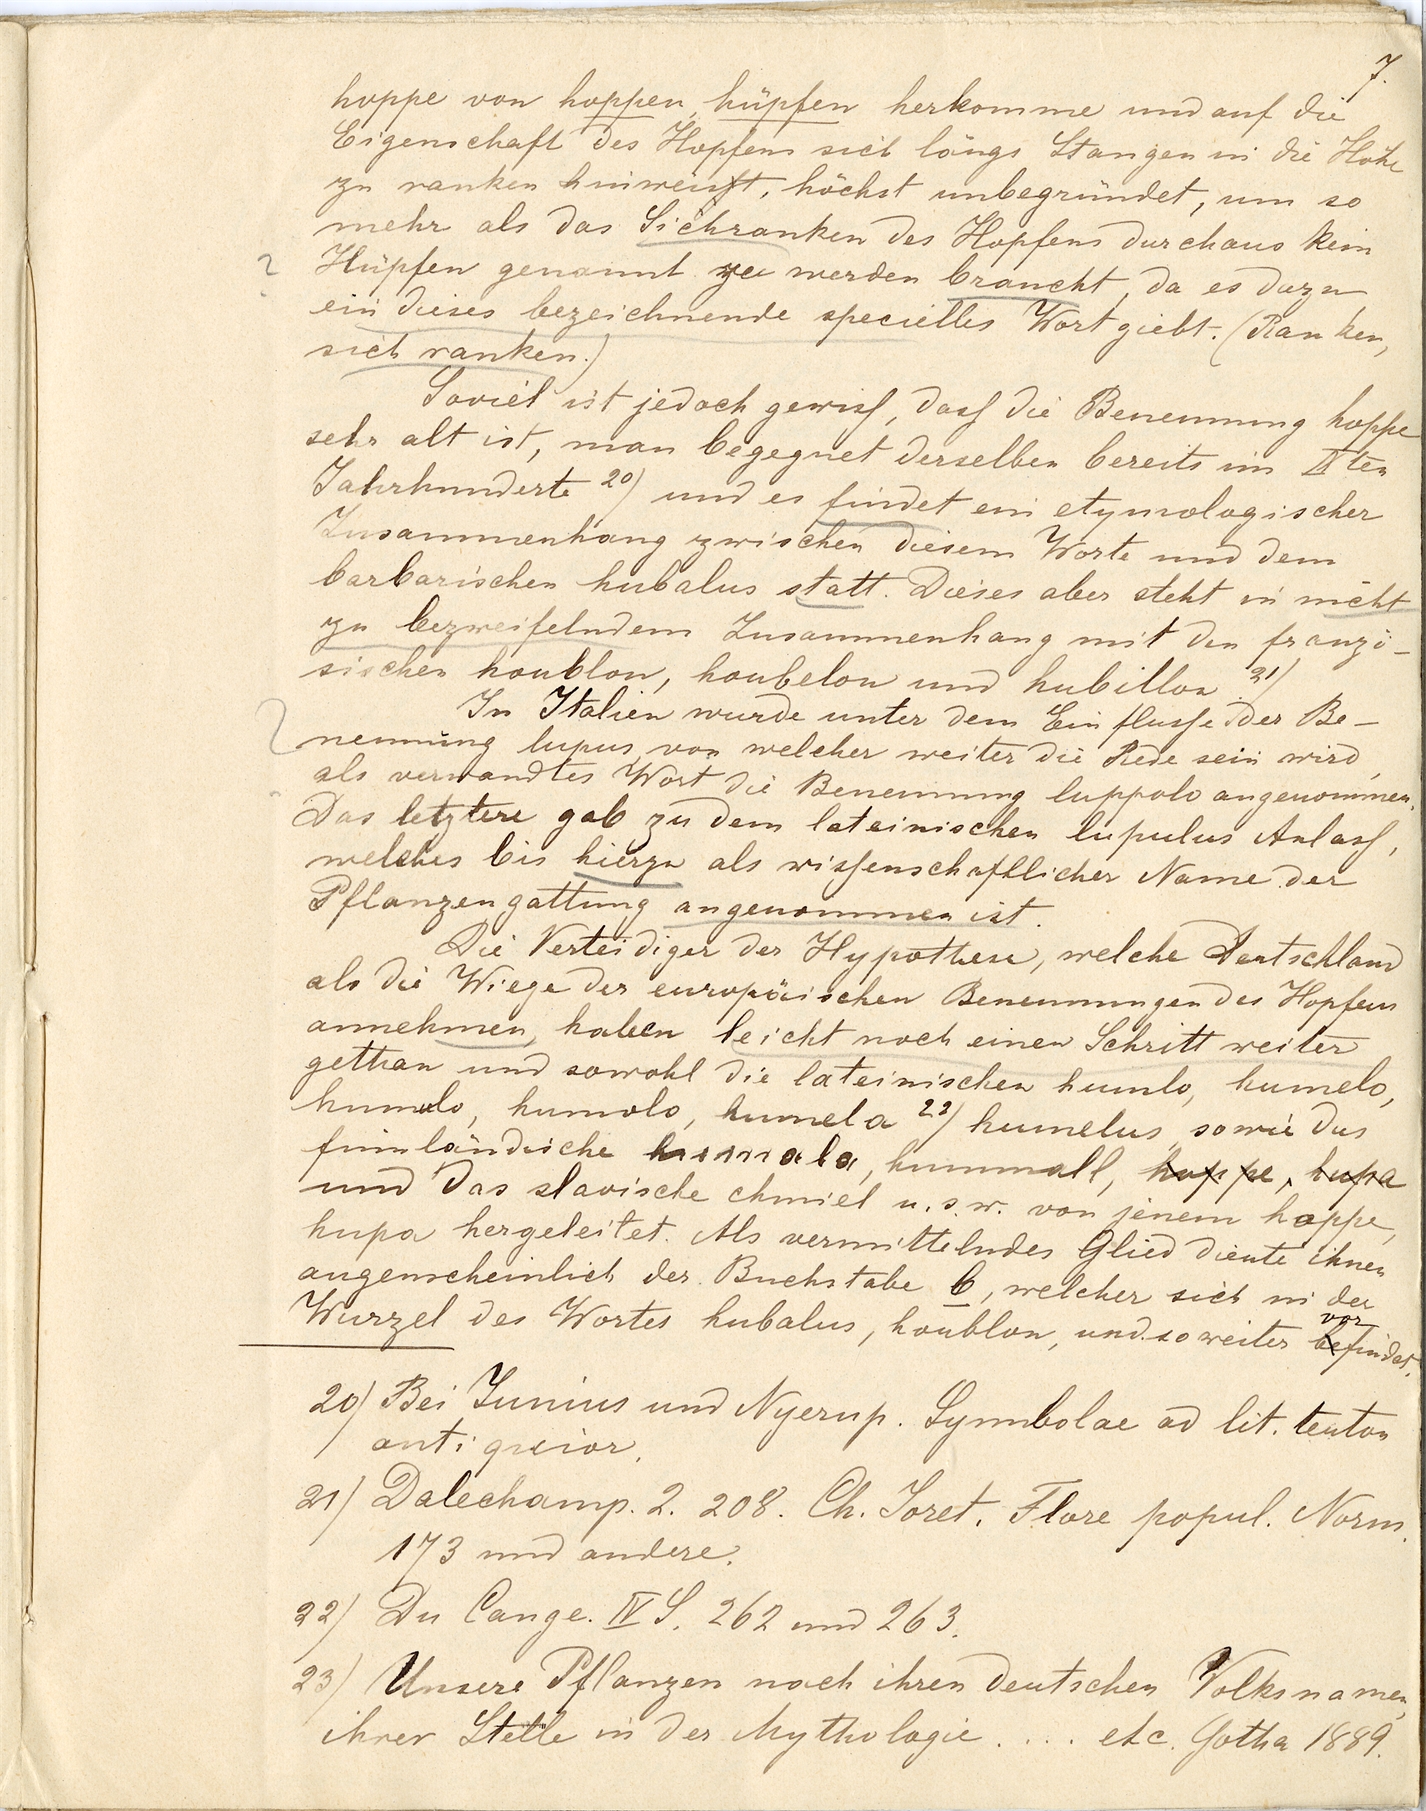 7.
hoppe von hoppen, hüpfen herkomme und auf die
Eigenschaft des Hopfens sich längs Stangen in die Höhe
zu ranken hinweist, höchst unbegründet, um so
mehr als das Sichranken des Hopfens durchaus kein
? Hüpfen genannt zu werden braucht, da es dazu
ein dieses bezeichnende specielles Wort giebt. (Ranken,
sich ranken.)
Soviel ist jedoch gewiss, dass die Benennung hoppe
sehr alt ist, man begegnet derselben bereits im IX ten
Jahrhunderte 20) und es findet ein etymologischer
Zusammenhang zwischen diesem Worte und dem
barbarischen hubalus statt. Dieses aber steht in nicht
zu bezweifelndem Zusammenhang mit den franzö-
sischen houblon, houbelon und hubillon. 21)
In Italien wurde unter dem Einflusse der Be-
nennung lupus, von welcher weiter die Rede sein wird,
als verwandtes Wort die Benennung luppolo angenommen.
Das letztere gab zu dem lateinischen lupulus Anlass,
welches bis hierzu als wissenschaftlicher Name der
Pflanzengattung angenommen ist.
Die Verteidiger der Hypothese, welche Deutschland
als die Wiege der europäischen Benennungen des Hopfens
annehmen, haben leicht noch einen Schritt weiter
gethan und sowohl die lateinischen humlo, humelo,
humulo, humolo, humela 22) humelus, sowie das
finnländische humala, hummall, hoppe, hupa
und das slavische chmiel u.s.w. von jenem hoppe,
hupa hergeleitet. Als vermittelndes Glied diente ihnen
augenscheinlich der Buchstabe b, welcher sich in der
vor
Wurzel des Wortes hubalus, houblon, und so weiter befindet.
20) Bei Junius und Nyerup. Symbolae ad lit. teuton
antiquior.
21) Dalechamp. 2. 208. Ch. Joret. Flore popul. Norm.
173 und andere.
22) Du Cange. IV S. 262 und 263.
23) Unsere Pflanzen nach ihren deutschen Volksnamen,
ihrer Stelle in der Mythologie .... etc. Gotha 1889.